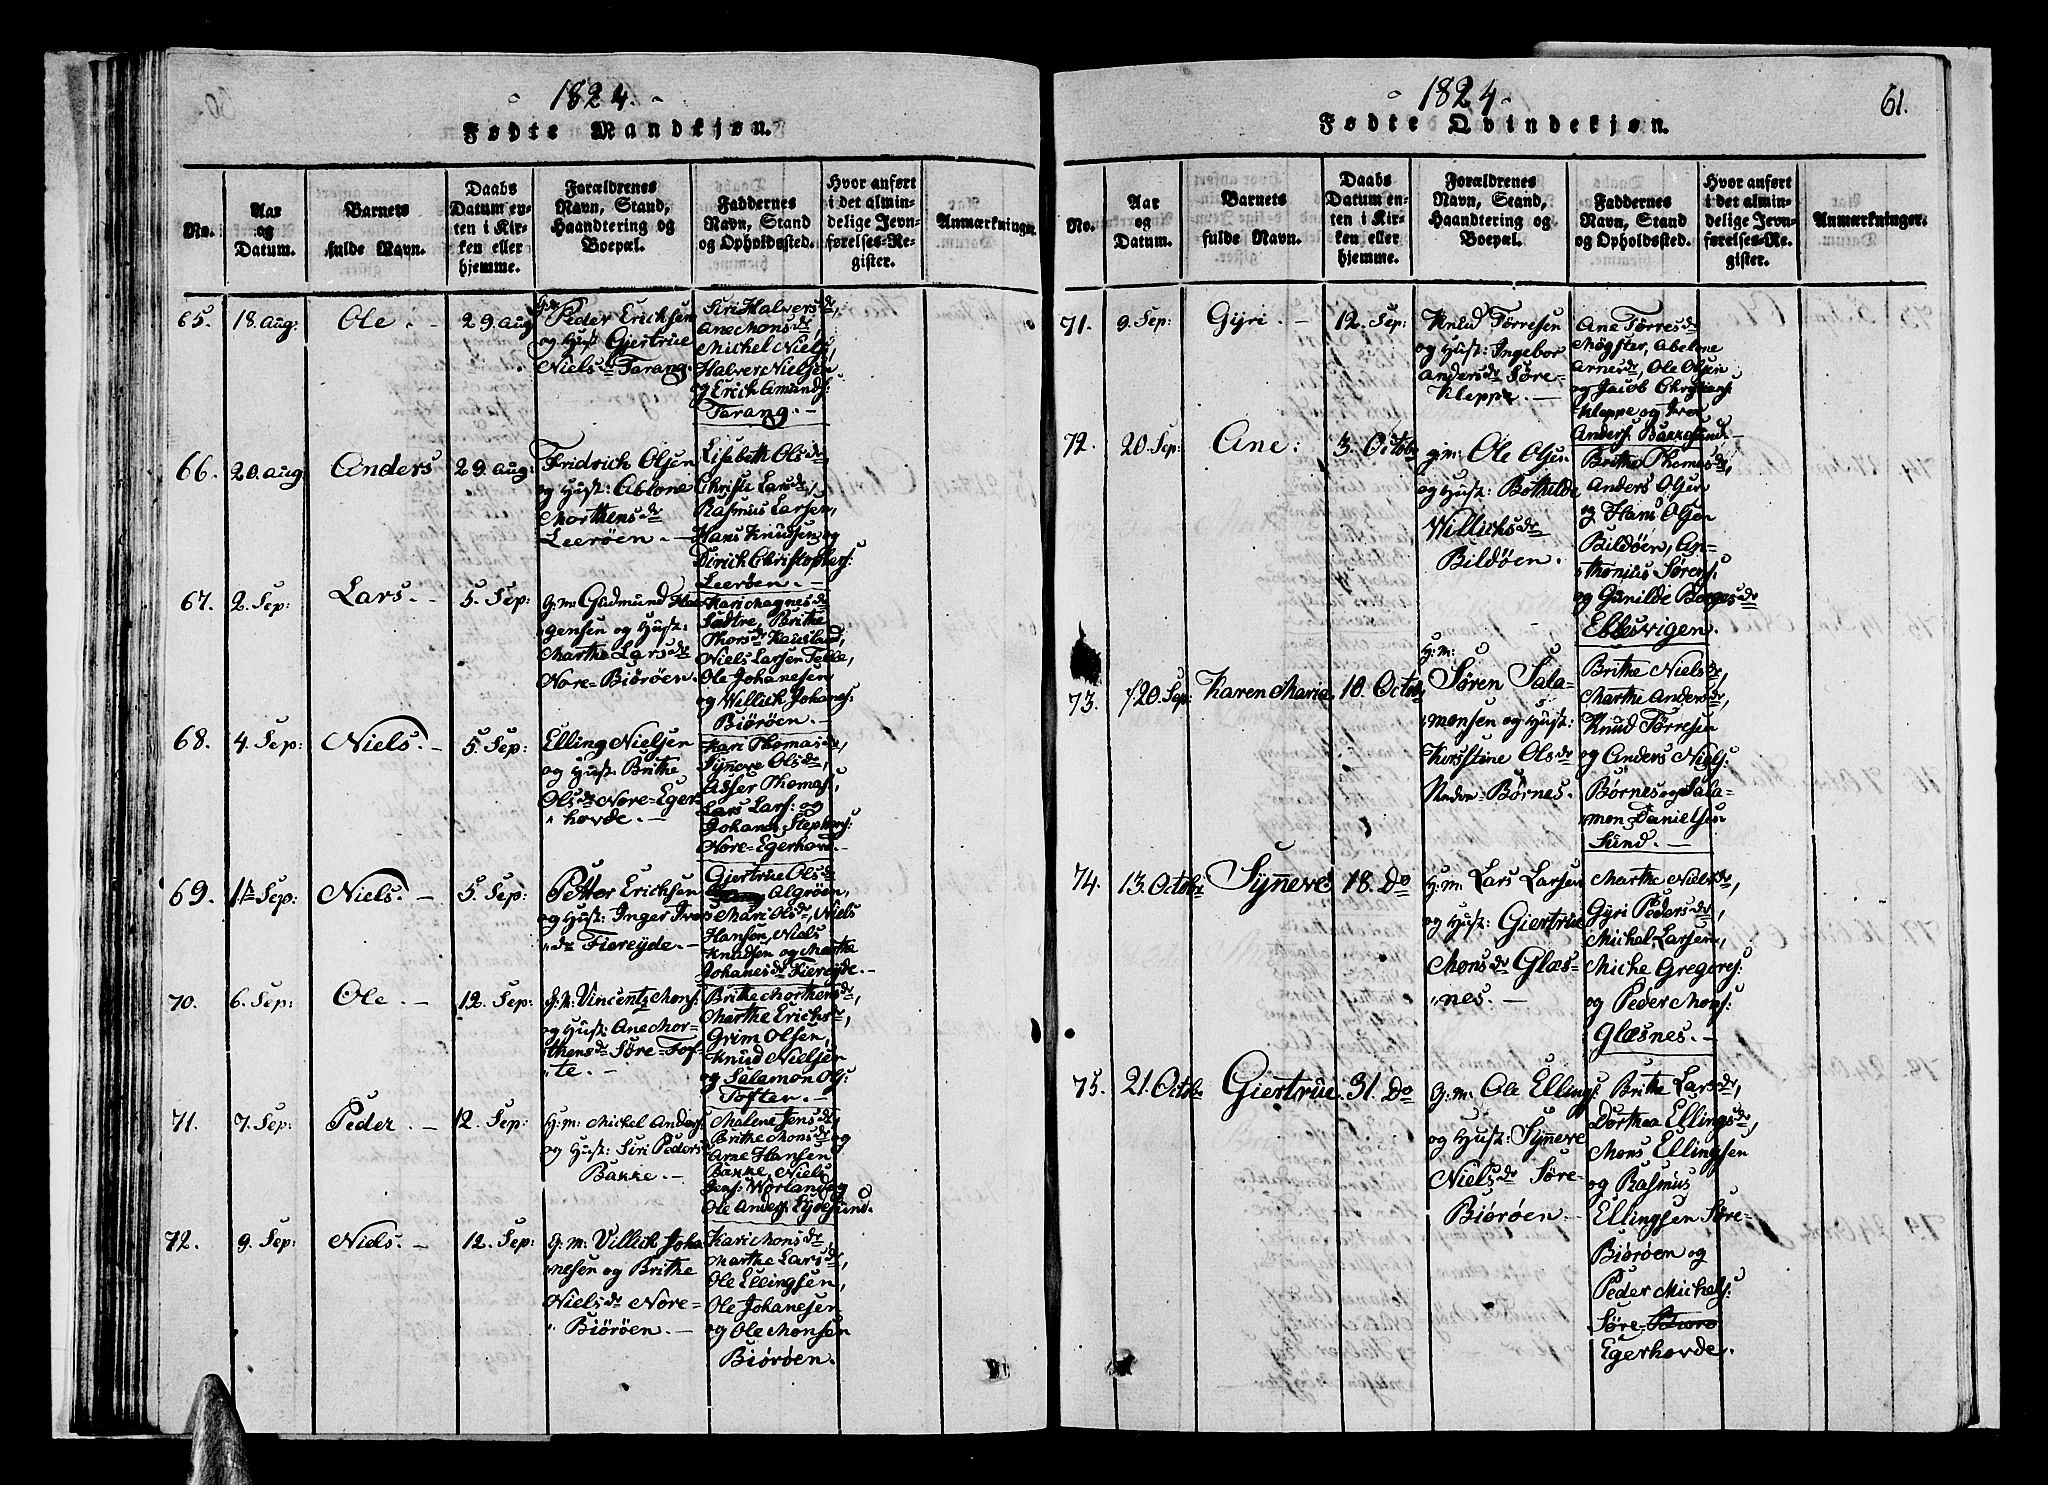 1824.
Fødte Mandkjøn.
No.
Aar
og
Datum.
Barnets
fulde Navn.
Daabs
Datum en-
ten i Kir-
ken eller
hjemme.
Forældrenes
Navn, Stand,
Haandtering og
Boepæl.
Faddernes
Navn, Stand
og Opholdssted.
Hvor anført
i det almin-
delige Jevn-
førelses-Re-
gister.
Anmærkninger.
65.
18. Aug:
Ole. -
29. Aug
g: m
Peder Erichsen
og Hust: Gjertrue
Niels dr Tarang.
Siri Halvers dr,
Ane Mons dr,
Michel Niels:
Halver Nielsen
og Erich Amunds:
Tarang. -
66.
20. Aug
Anders
29. Aug:
Fridrich Olsen
og Hust: Ablone
Morthens dr
Leerøen. -
Lisabeth Ols dr
Christi Lars dr,
Rasmus Larsen,
Hans Knudsen og
Dirich Christophers:
Leerøen. -
67.
2. Sep:
Lars. -
5. Sep:
g: m: Gudmund Ha-
gensen og Hust:
Marthe Lars dr
Nore-Biörøen.
Kari Magnes dr
Sadtre, Brithe
Thors dr Kausland,
Niels Larsen Telle,
Ole Johanesen
og Willich Johanes:
Biörøen. -
68.
4. Sep:
Niels. -
5. Sep:
Elling Nielsen
og Hust: Brithe
Ols dr Nore-Eger-
hovde. -
Kari Thomas dr,
Synneve Ols dr,
Asser Thomas:,
Lars Lars: og
Johanes Stephens:
Nore-Egerhovd. -
69.
4 Sep:
Niels. -
5. Sep:
Petter Erichsen
og Hust: Inger Ivers
dr Fiereyde. -
Gjertrue Ols dr
Algrøen,
Mari Ols dr, Niels
Hansen, Niels
Knudsen og Marthe
Johanes dr Fiereyde. -
70.
6. Sep:
Ole. -
12. Sep:
g: m: Vincentz Mons:
og Hust: Ane Mor-
thens dr Søre-Tof-
te. -
Brithe Morthens dr,
Marthe Erichs dr,
Grim Olsen,
Knud Nielsen
og Salamon Ols:
Tofter. -
71.
7. Sep:
Peder. -
12. Sep:
g: m: Michel Anders:
og Hust: Siri Peders
Bakke. -
Malene Jens dr
Brithe Mons dr og
Arne Hansen
Bakke, Niels
Jens: Worland og
Ole Anders: Eydesund.
72.
9. Sep:
Niels. -
12. Sep:
g: m: Villich Joha-
nesen og Brithe
Niels dr Nore-
Biörøen. -
Kari Mons dr,
Marthe Lars dr
Ole Ellingsen,
Ole Johanesen
og Ole Monsen
Biörøen.
1824.
61.
Fødte Qvindekjøn.
No.
Aar
og
Datum.
Barnets
fulde Navn.
Daabs
Datum en-
ten i Kir-
ken eller
hjemme.
Forældrenes
Navn, Stand,
Haandtering og
Boepæl.
Faddernes
Navn, Stand
og Opholdssted.
Hvor anført
i det almin-
delige Jevn-
førelses-Re-
gister.
Anmærkninger.
71.
9. Sep:
Gÿri. -
12. Sep:
Knud Tørresen
og Hust: Ingebor
Anders dr Søre-
Kleppe. -
Ane Tørres dr
Mögster, Abelone
Arne dr, Ole Olsen
og Jacob Christians:
Kleppe og Iver
Anders: Bakkasund. -
72.
20. Sep:
Ane:
3. Octobr
g: m: Ole Olsen
og Hust: Bothilde
Willichs dr
Bildøen.
Brithe Thomas dr,
Anders Olsen
og Hans Olsen
Bildøen, An-
thonius Sørens:
og Gunilde Børges dr
Ebbesvigen.
73.
20. Sep:
Karen Maria
10. Octobr
g: m:
Søren Sala-
monsen og Hust:
Kirstine Ols dr
Nedre-Börnes.
Brithe Niels dr,
Marthe Anders dr,
Knud Tørresen
og Anders Niels:
Börnes og Sala-
mon Danielsen
Sund. -
74.
13. Octobr
Synnevé
18. Do
g: m: Lars Larsen
og Hust: Giertrue
Mons dr Glæs-
nes. -
Marthe Niels dr,
Gÿri Peders dr,
Michel Larsen,
Miche Gregers:
og Peder Mons:
Glæsnes. -
75.
21. Octobr
Giertrue.
31. Do
g: m: Ole Ellings:
og Hust: Synneve
Niels dr Søre-
Biörøen. -
Brithe Lars dr,
Dorthea Ellings dr,
Mons Ellingsen
og Rasmus
Ellingsen Søre-
Biörøen og
Peder Michels:
Søre-
Egerhovde.